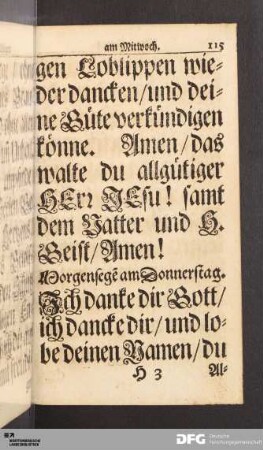 am Mittwoch. 115
gen Loblippen wie-
der dancken/und dei-
ne Güte verkündigen
könne. Amen/das
walte du allgütiger
HErr JEsu! samt
dem Vatter und H.
Geist/Amen!
Morgensegē am Donnerstag.
Ich danke dir Gott/
ich dancke dir/und lo-
be deinen Namen/du
H 3 Al-
DFG Deutsche
Forschungsgemeinschaft